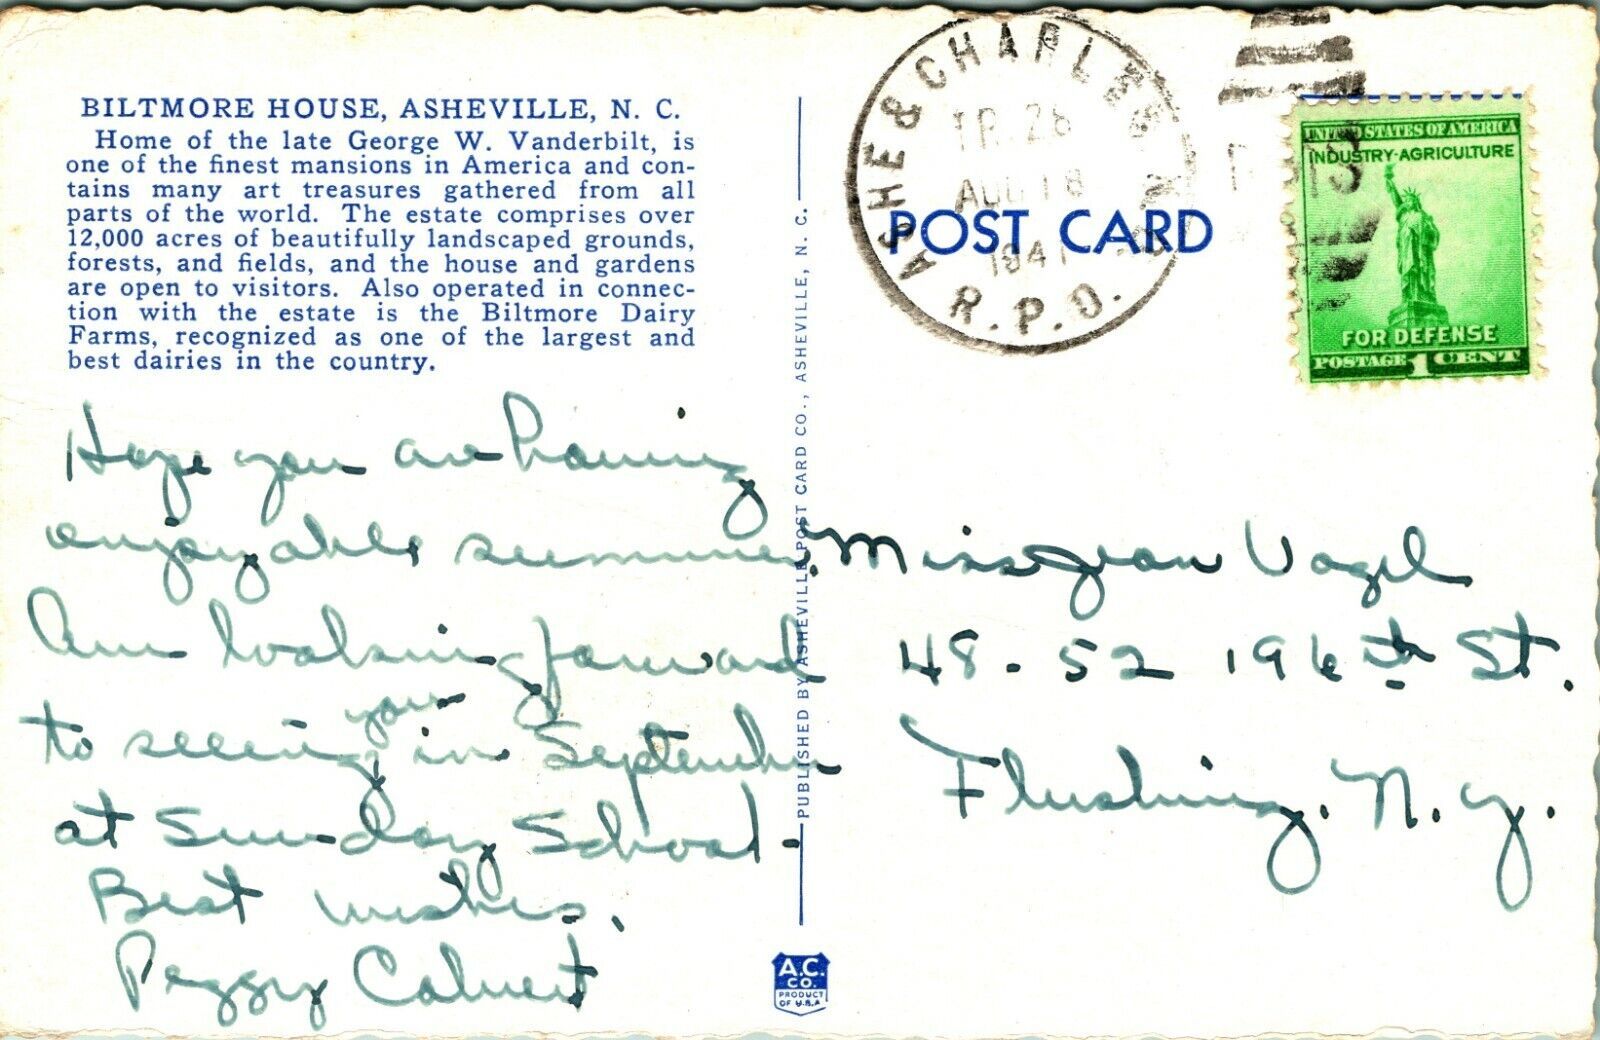 BILTMORE HOUSE, ASHEVILLE, N. C.
Home of the late George W. Vanderbilt, is
one of the finest mansions in America and con-
tains many art treasures gathered from all
parts of the world. The estate comprises over
12,000 acres of beautifully landscaped grounds,
forests, and fields, and the house and gardens
are open to visitors. Also operated in connec-
tion with the estate is the Biltmore Dairy
Farms, recognized as one of the largest and
best dairies in the country.
Hope you are having
enjoyable summer.
Am looking forward
to seeing you in September
at Sunday School -
Best wishes,
Peggy Calvert
PUBLISHED BY ASHEVILLE POST CARD CO., ASHEVILLE, N. C.
A.C.
CO.
PRODUCT
OF U.S.A
ASHE & CHARLES
TR. 28
AUG 18
1941
R.P.O.
POST CARD
UNITED STATES OF AMERICA
INDUSTRY-AGRICULTURE
FOR DEFENSE
POSTAGE 1 CENT
Miss Jean Vogel
48-52 196th St.
Flushing, N. Y.